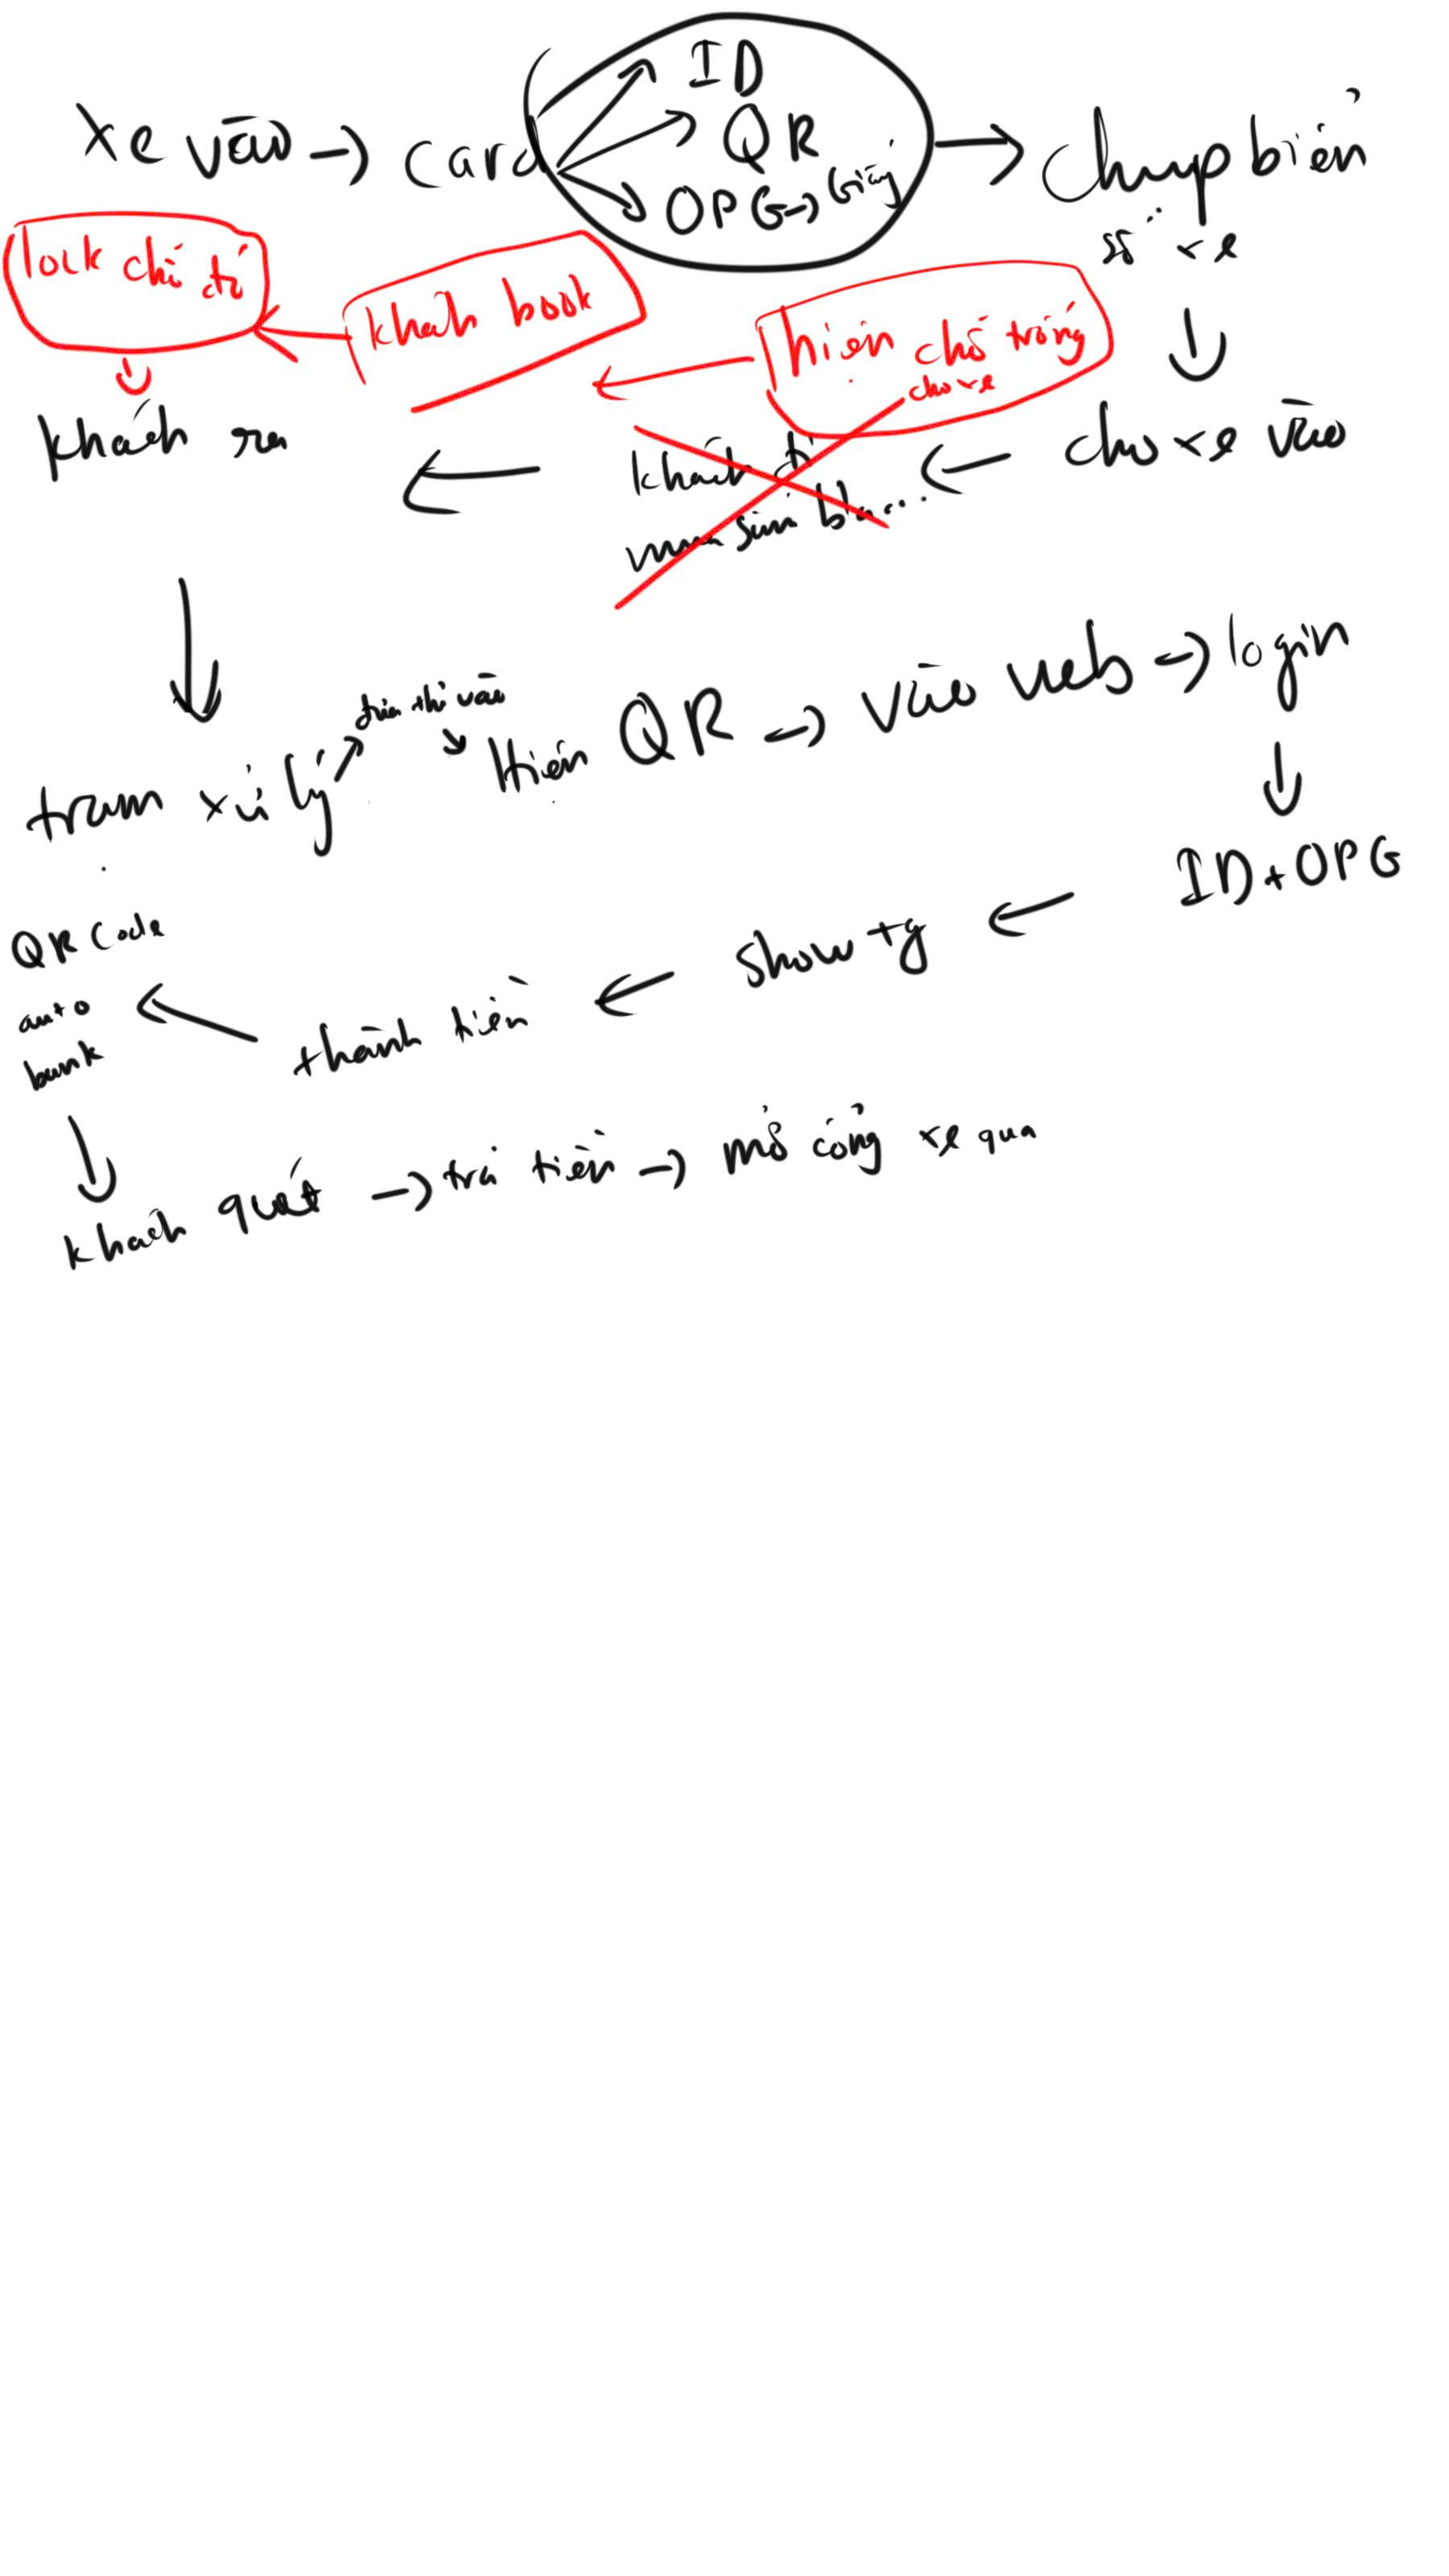 xe vào → card
ID
QR
OPG →
→ chụp biển
số xe
lock chỗ đó
khách book
hiện chỗ trống
cho xe
khách ra
cho xe vào
khách đi
mua sắm bla...
trạm xử lý
thì vào
Hiện QR → vào web → login
ID + OPG
show tg
thành tiền
QR Code
auto
bank
khách quét → trả tiền → mở cổng xe qua